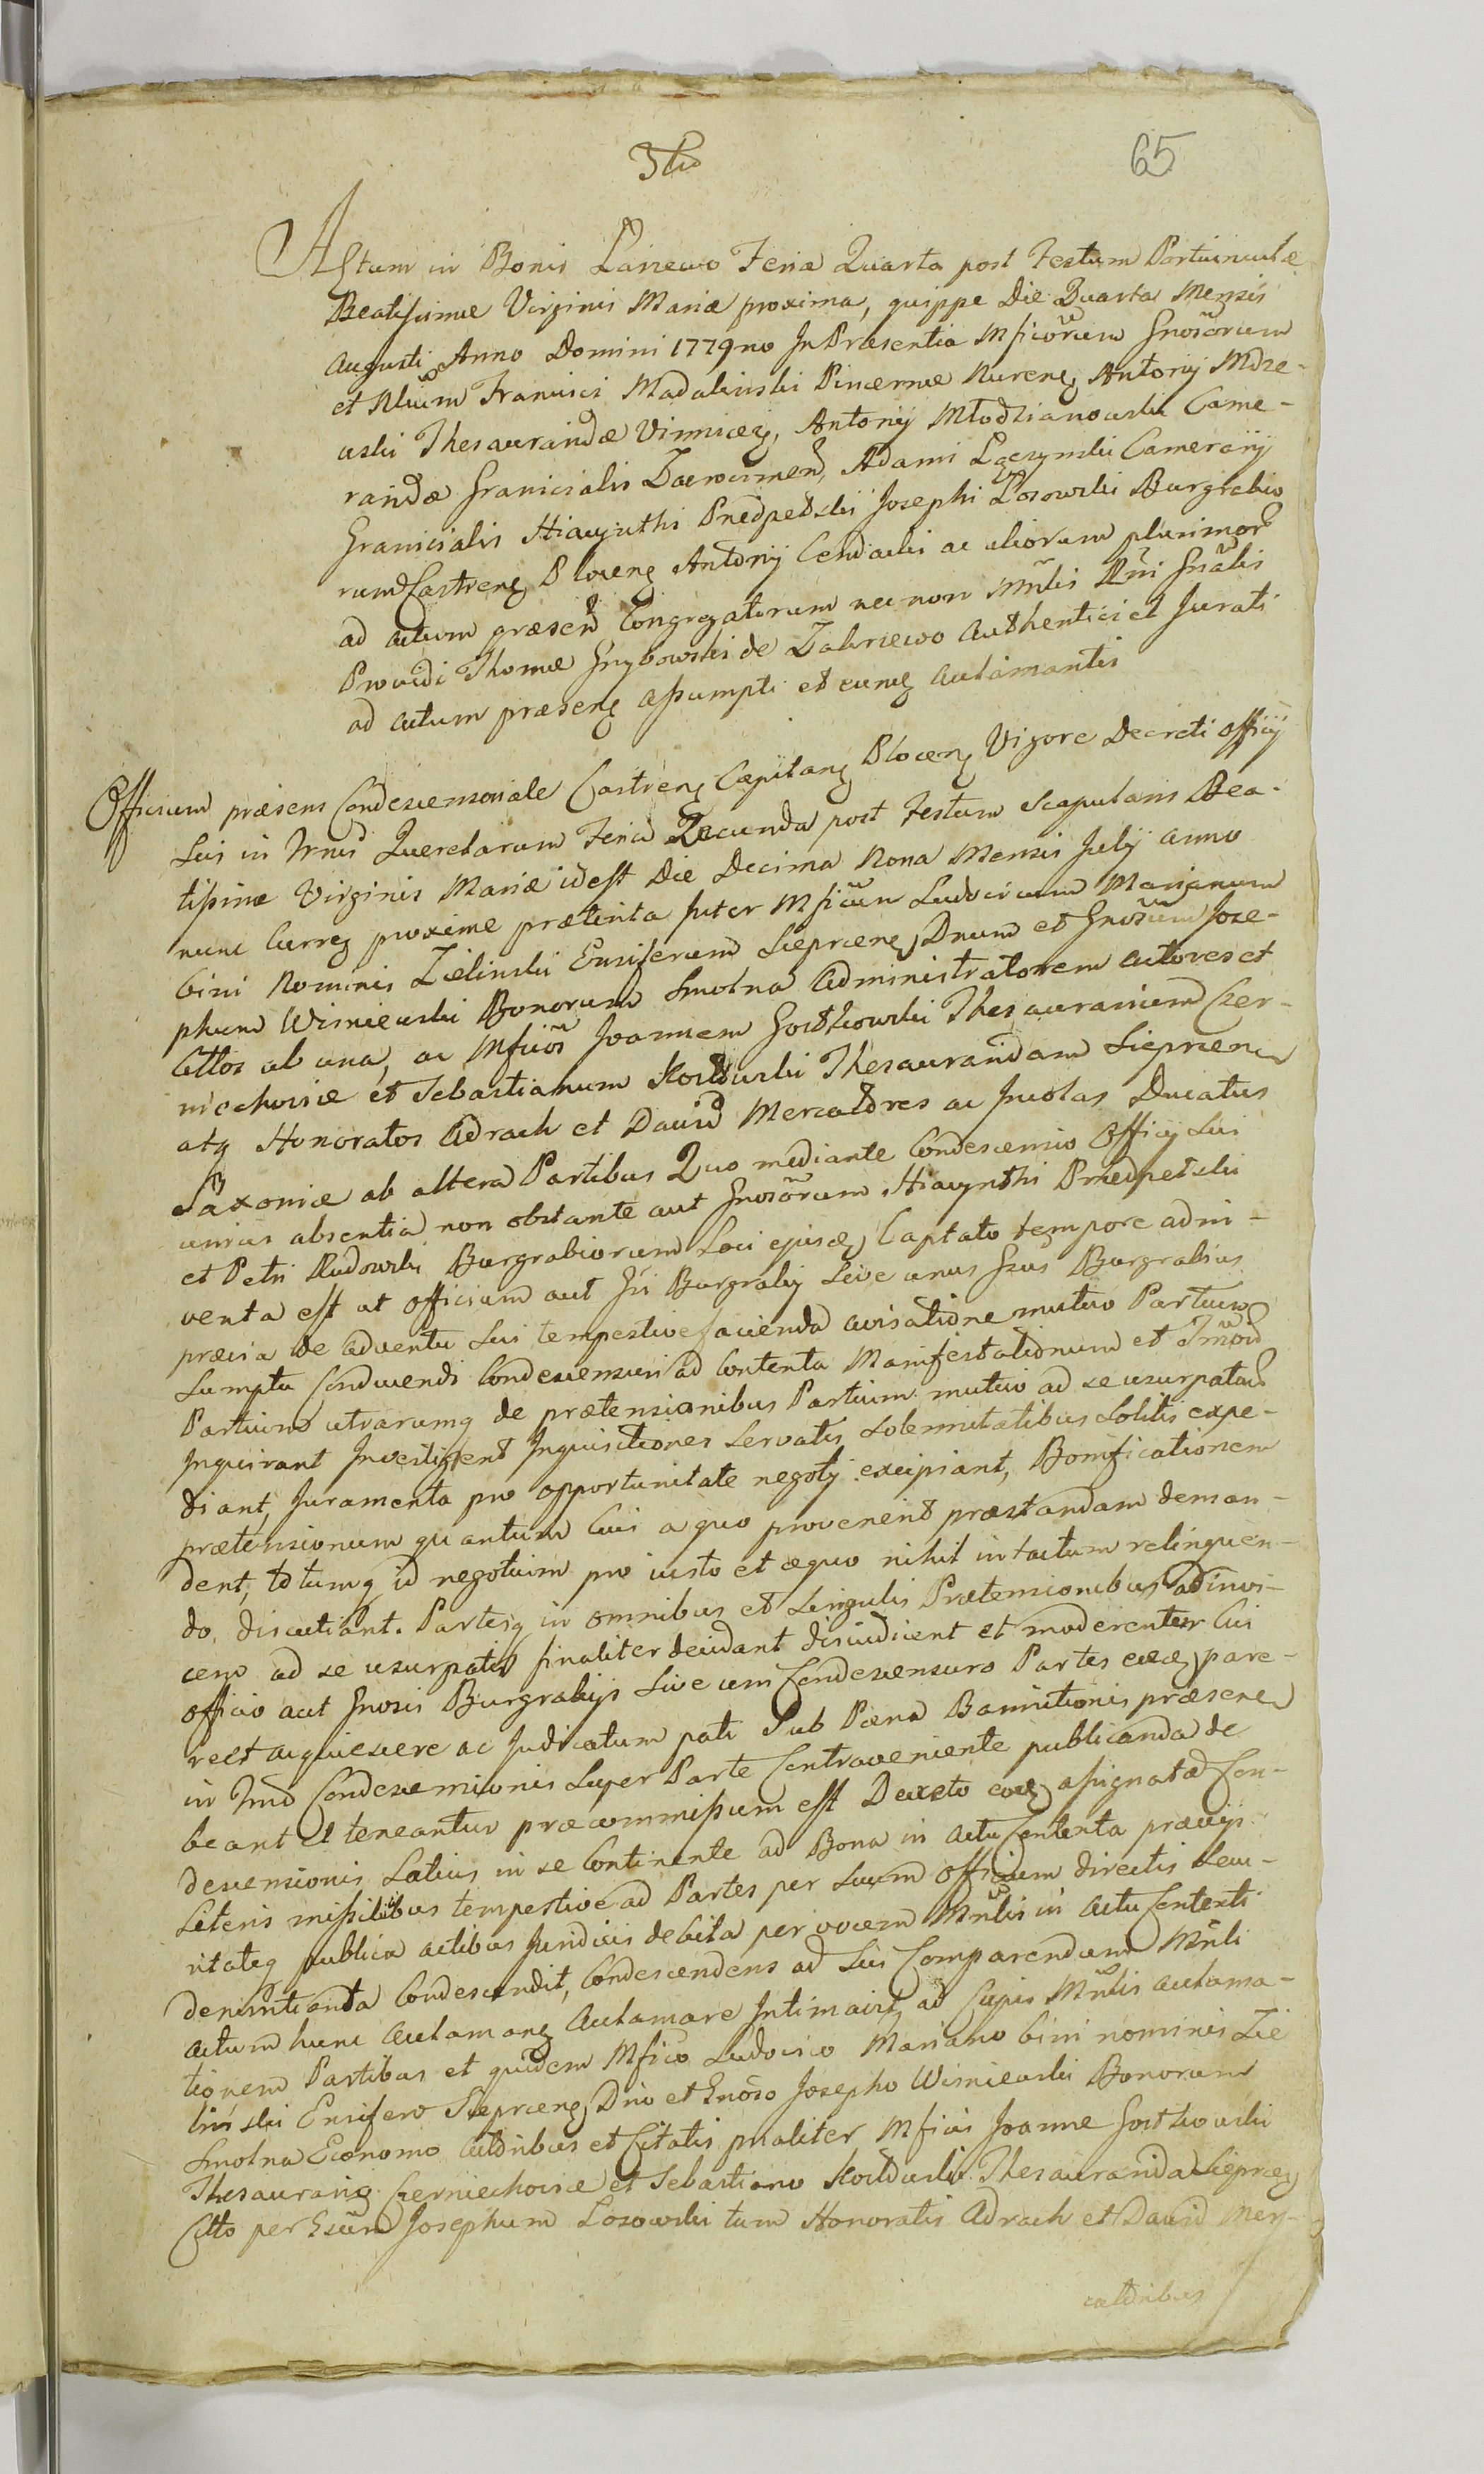 3tio
65
Actum in Bonis Łaszewo Feria Quarta post Festum Portiunculæ
Beatissimæ Virginis Mariæ proxima, quippe Die Quarta Mensis
Augusti Anno Domini 1779no In Præsentia Mficorum Gnosorum
et Nlium Francisci Madalinski Pincernæ Nureng, Antonij Mdze-
wski Thesauraridæ Vinniceg, Antonij Młodzianowski Came-
raridæ Granicialis Zawcrinen, Adami Łączynski Camerarij
Granicialis Hiacynthi Przedpełski Josephi Łosowski Burgrabio
rum Castreng Ploceng Antonij Cendrowski ac aliorum plurimor
ad actum præsen Congregatorum nec non Mnlis Rni Gnalis
Providi Thomæ Grzybowski de Zakrzewo Authentici et Jurati
ad actum præseng assumpti et eung Aclamantis
Officium præsens Condescensoriale Castreng Capitang Ploceng Vigore Decreti Officij
Sui in Trnis Querelarum Feria Secunda post Festum Scapularis Bea-
tissimæ Virginis Mariæ idest Die Decima Nona Mensis Julij anno
nunc Curreg proxime præterita Inter Mficum Ludovicum Marianum
bini Nominis Zielinski Ensiferum Siepraeng, Dnum et Gnosum Jose-
phum Wisniewski Bonorum Smolna Administratorem Actores et
Cttos ab una, ac Mficos Joannem Gostkowski Thesaurarium Czer-
niechoviæ et Sebastianum Thesauraridam Siepraen
atq Honoratos Adrach et David Mercatores ac Incolas Ducatus
Saxoniæ ab altera Partibus Quo mediante Condescensio Officij Sui
unius absentia non obstante aut Gnosorum Hiacynthi Przedpełski
et Petri Rudowski Burgrabiorum Loci ejusdeg, Captato tempore adni-
venta est ut Officium aut Gsi Burgrabij Sive unus Gsus Burgrabius
prævia de adventu Sui tempestive facienda avisatione mutuo Partium
Sumptu Conducendi Condescensuri ad Contenta Manifestationum et Tmor
Partium utrarumq de prætensionibus Partium mutuo ad se usurpatar
Inquirant Investigent Inquisitiones Servatis Solennitatibus Solitis expe-
diant, Juramenta pro opportunitate negotij excipiant, Bonificationem
prætensionum quantum Cui a quo provenerit præstandam deman-
dent, totumq id negotium pro iusto et æquo nihil intactum relinquen-
do, discutiant. Partesq in omnibus et Singulis Prætensionibus adinvi-
cem ad se usurpatis finaliter decidant disiudicent et moderentur Cui
officio aut Gnosis Burgrabijs Sive uni Condescensuro Partes eædeg pare-
re et acquiescere ac Judicatum pati Sub Pæna Bannitionis præsen
in Tmo Condescensionis Super Parte Contraveniente publicanda de
beant et teneantur præcommissum est Decreto eodeg assignatæ Con-
descensionis Latius in se Continente ad Bona in Actu Contenta prævijs
Literis missilibus tempestive ad Partes per Suum Officium directis Secu-
ritateg publica actibus Juridicis debita per vocem Mnlis in Actu Contenti
denuntianda Condescendit, Condescendens ad Sui Comparendum Mnli
actum hunc Aclamang Aclamare Intimavit, ad Cujus Mnlis aclama-
tionem Partibus et quidem Mfico Ludovico Mariano bini nominis Zie
linski Ensifero Siepraeng, Dno et Gnoso Josepho Wisniewski Bonorum
Smolna Economo Actoribus et Citatis pnaliter, Mficis Joanne Gostkowski
Thesaurarig Czerniechoviæ et Sebastiano Thesaurarida Siepraeg
Ctto per Gsum Josephum Losowski tum Honoratis Adrach et David Mer-
catoribus